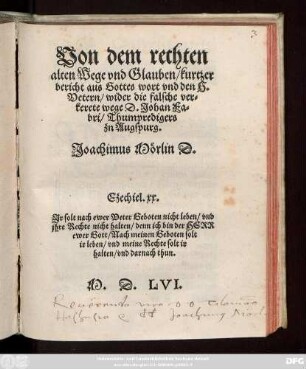 3
Von dem rechten
alten Wege vnd Glauben/kurtzer
bericht aus Gottes wort vnd den H.
Vetern/wider die falsche ver-
kerete wege D. Johan Fa-
bri/Thumpredigers
zu Augspurg.
Joachimus Mörlin D.
Ezechiel. xx.
Ir solt nach ewer Veter Geboten nicht leben/vnd
ihre Rechte nicht halten/denn ich bin der HERR
ewer Gott/Nach meinen Geboten solt
ir leben/vnd meine Rechte solt ir
halten/vnd darnach thun.
M. D. LVI.
Reuerendo viro
Joachimus